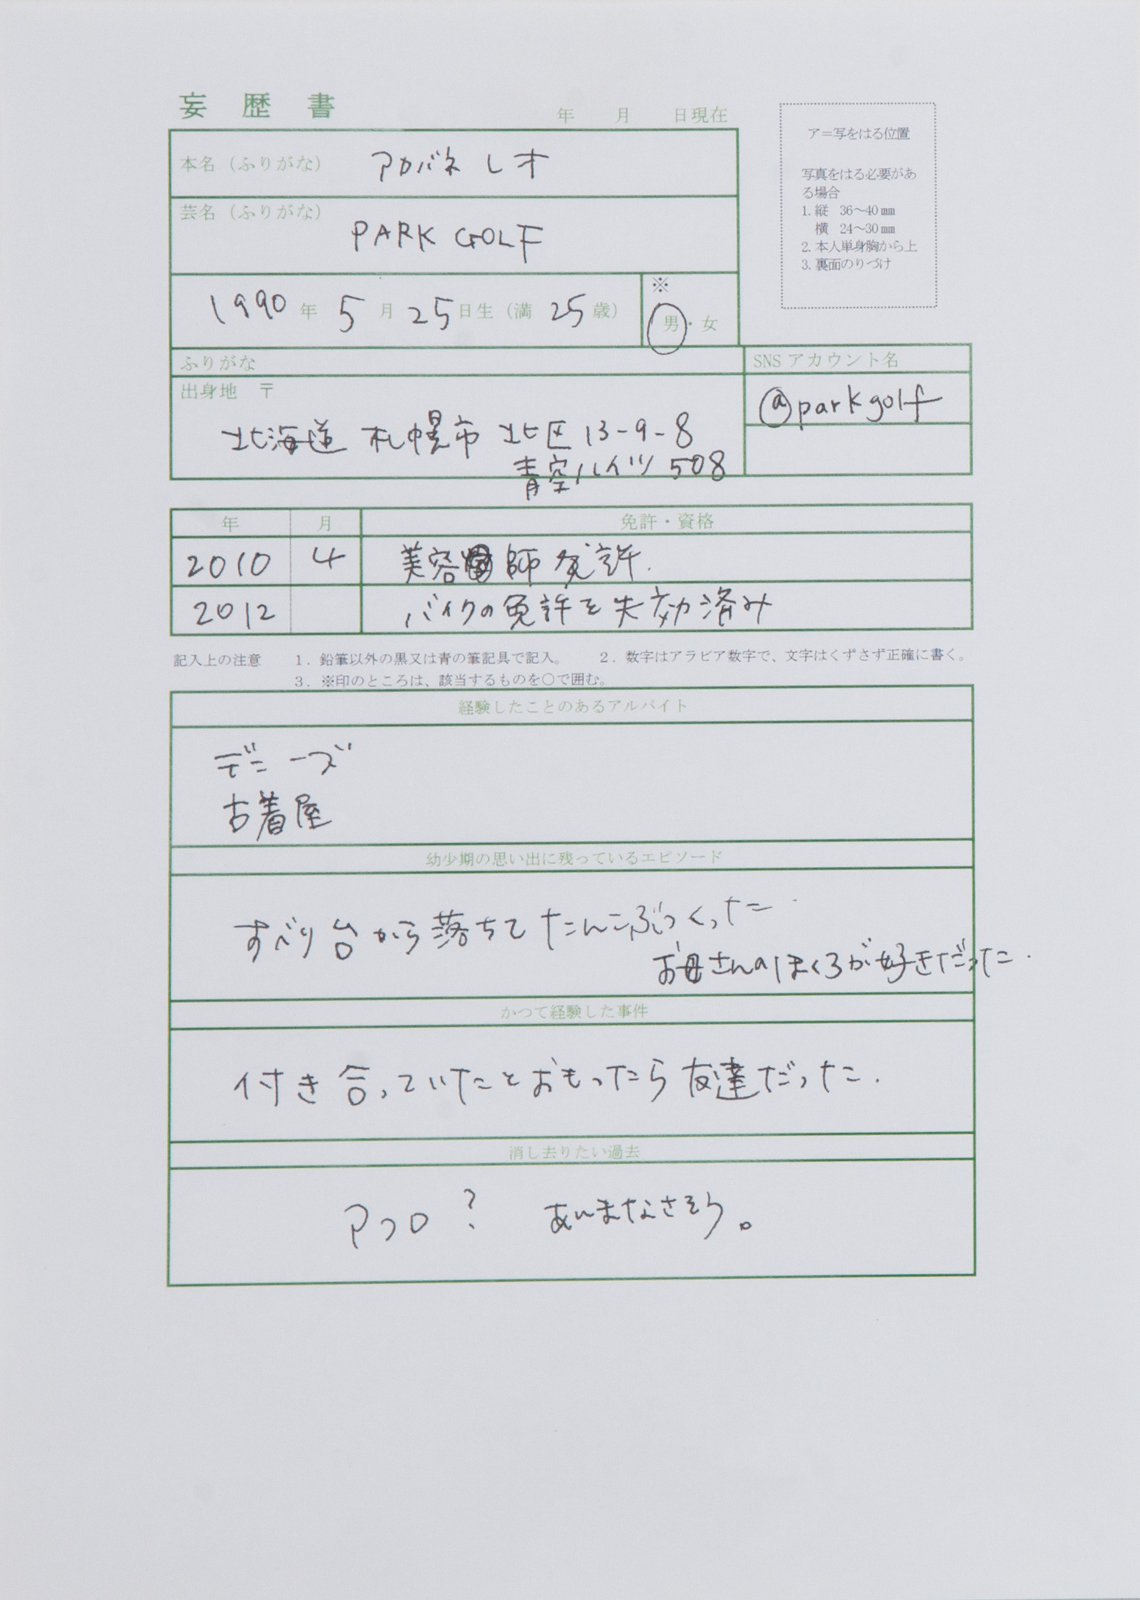 妄歴書
年 月 日現在
ア=写をはる位置
写真をはる必要があ
る場合
1. 縦 36～40㎜
横 24～30㎜
2. 本人単身胸から上
3. 裏面のりづけ
本名（ふりがな） アカバネ レオ
芸名（ふりがな） PARK GOLF
1990年 5月 25日生（満 25歳）
※
男・女
ふりがな
SNSアカウント名
出身地 〒
@parkgolf
北海道 札幌市 北区 13-9-8
青空ハイツ 508
年 月 免許・資格
2010 4 美容師免許.
2012 バイクの免許を失効済み
記入上の注意 1．鉛筆以外の黒又は青の筆記具で記入。 2．数字はアラビア数字で、文字はくずさず正確に書く。
3．※印のところは、該当するものを○で囲む。
経験したことのあるアルバイト
デニーズ
古着屋
幼少期の思い出に残っているエピソード
すべり台から落ちてたんこぶつくった.
お母さんのほくろが好きだった.
かつて経験した事件
付き合っていたとおもったら友達だった.
消し去りたい過去
アフロ？